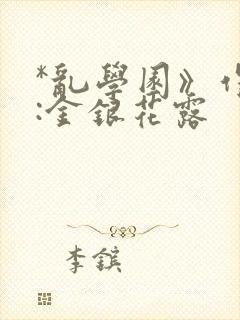 *亂學園》
:金銀花露
李鑌